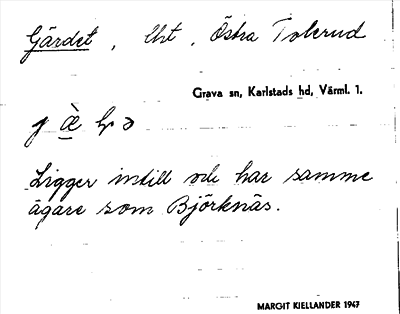 Gärdet, lht, Östra Tolerud
Grava sn, Karlstads hd, Värml. 1.
Ligger intill och har samme
ägare som Björknäs.
MARGIT KIELLANDER 1947